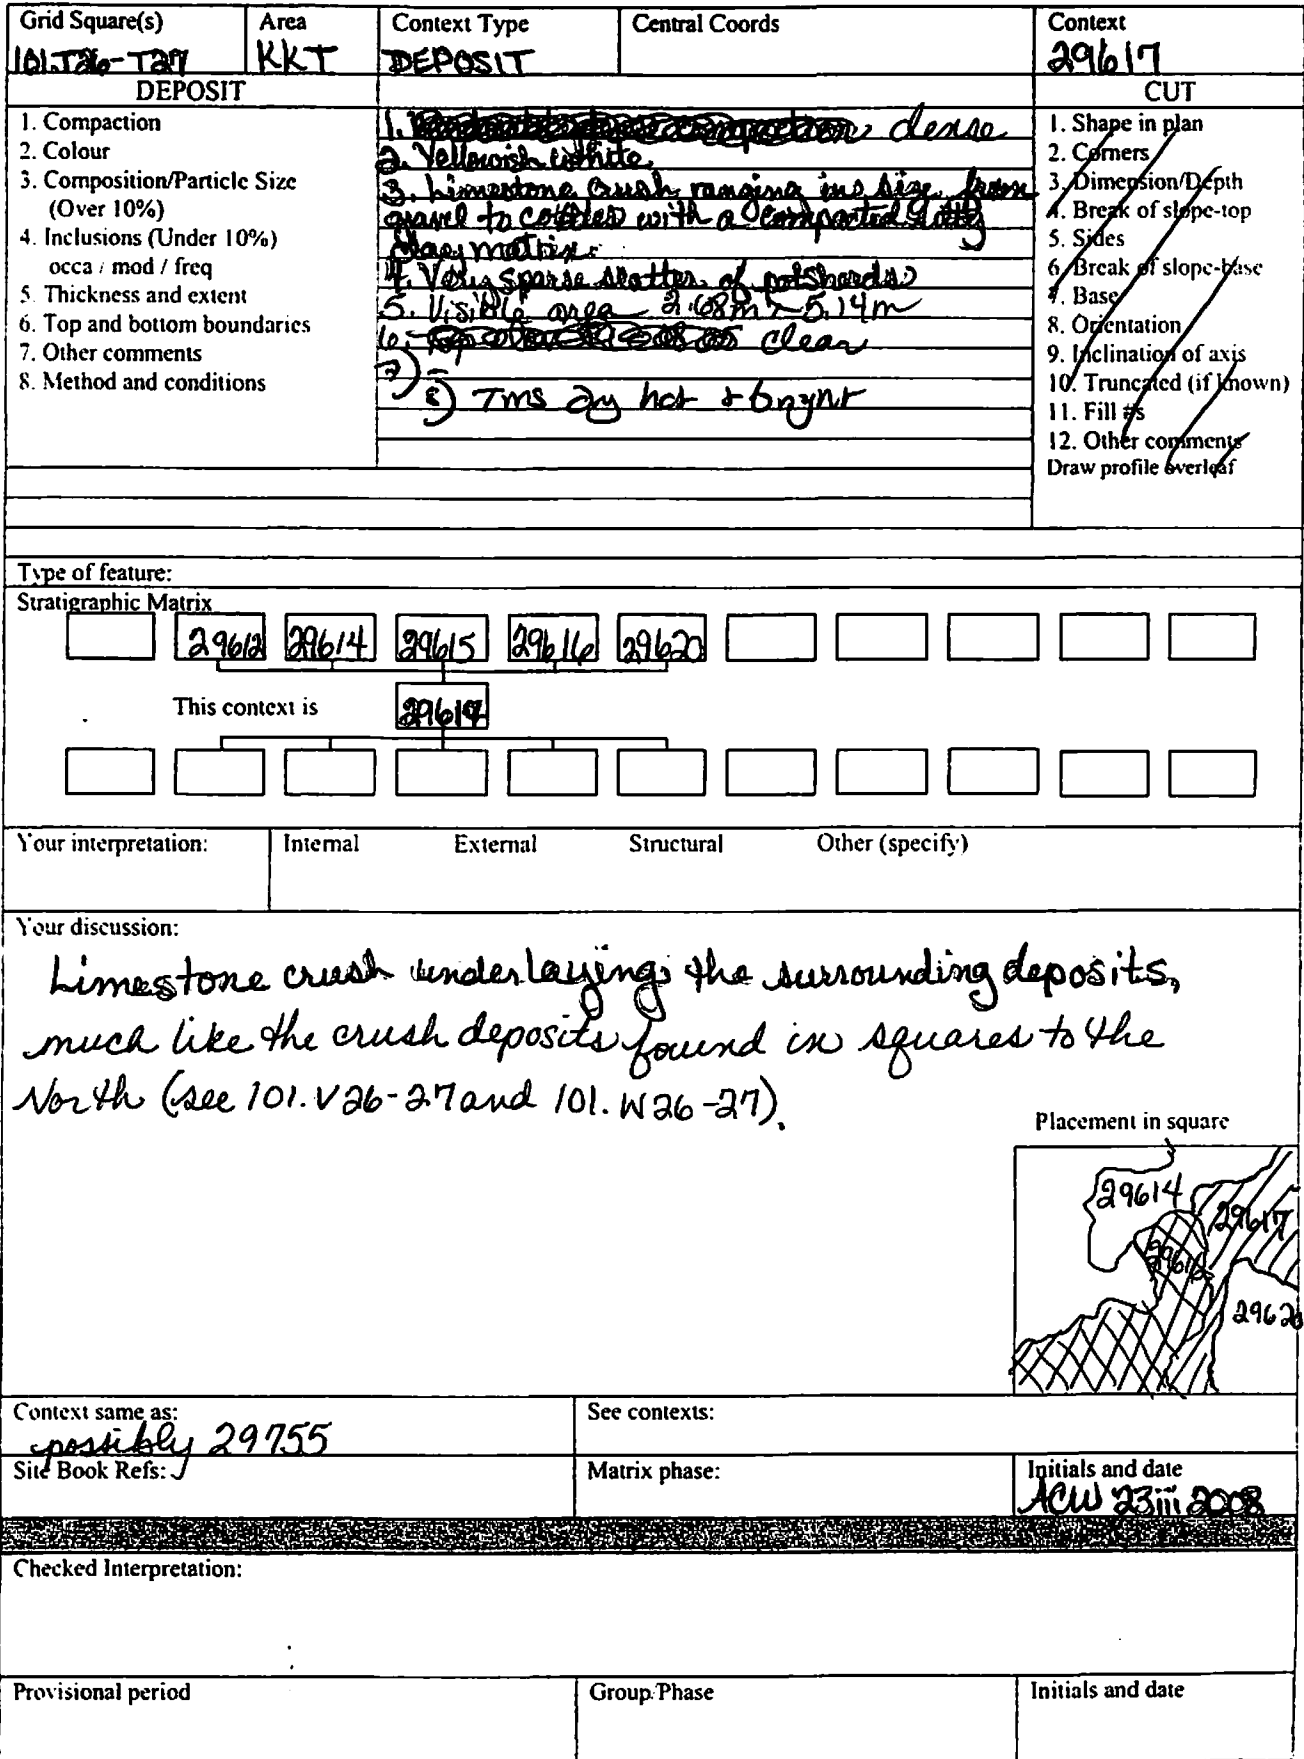 Grid Square(s) Area Context Type Central Coords Context
101.T26-T27 KKT DEPOSIT 29617
DEPOSIT CUT
1. Compaction
2. Colour
3. Composition/Particle Size
(Over 10%)
4. Inclusions (Under 10%)
occa / mod / freq
5. Thickness and extent
6. Top and bottom boundaries
7. Other comments
8. Method and conditions
1. dense
2. Yellowish white
3. Limestone crush ranging in size from
gravel to cobbles with a compacted silty
clay matrix.
4. Very sparse scatter of potsherds
5. Visible area 2.68m × 5.14m
6. clear
7) –
8) Tms dry hot +
1. Shape in plan
2. Corners
3. Dimension/Depth
4. Break of slope-top
5. Sides
6. Break of slope-base
7. Base
8. Orientation
9. Inclination of axis
10. Truncated (if known)
11. Fill #s
12. Other comments
Draw profile overleaf
Type of feature:
Stratigraphic Matrix
29612 29614 29615 29616 29620
This context is 29617
Your interpretation: Internal External Structural Other (specify)
Your discussion:
Limestone crush underlaying the surrounding deposits,
much like the crush deposits found in squares to the
North (see 101.V26-27 and 101.W26-27).
Placement in square
29614
29617
29616
29620
Context same as: See contexts:
possibly 29755
Site Book Refs: Matrix phase: Initials and date
ACW 23iii2008
Checked Interpretation:
Provisional period Group/Phase Initials and date